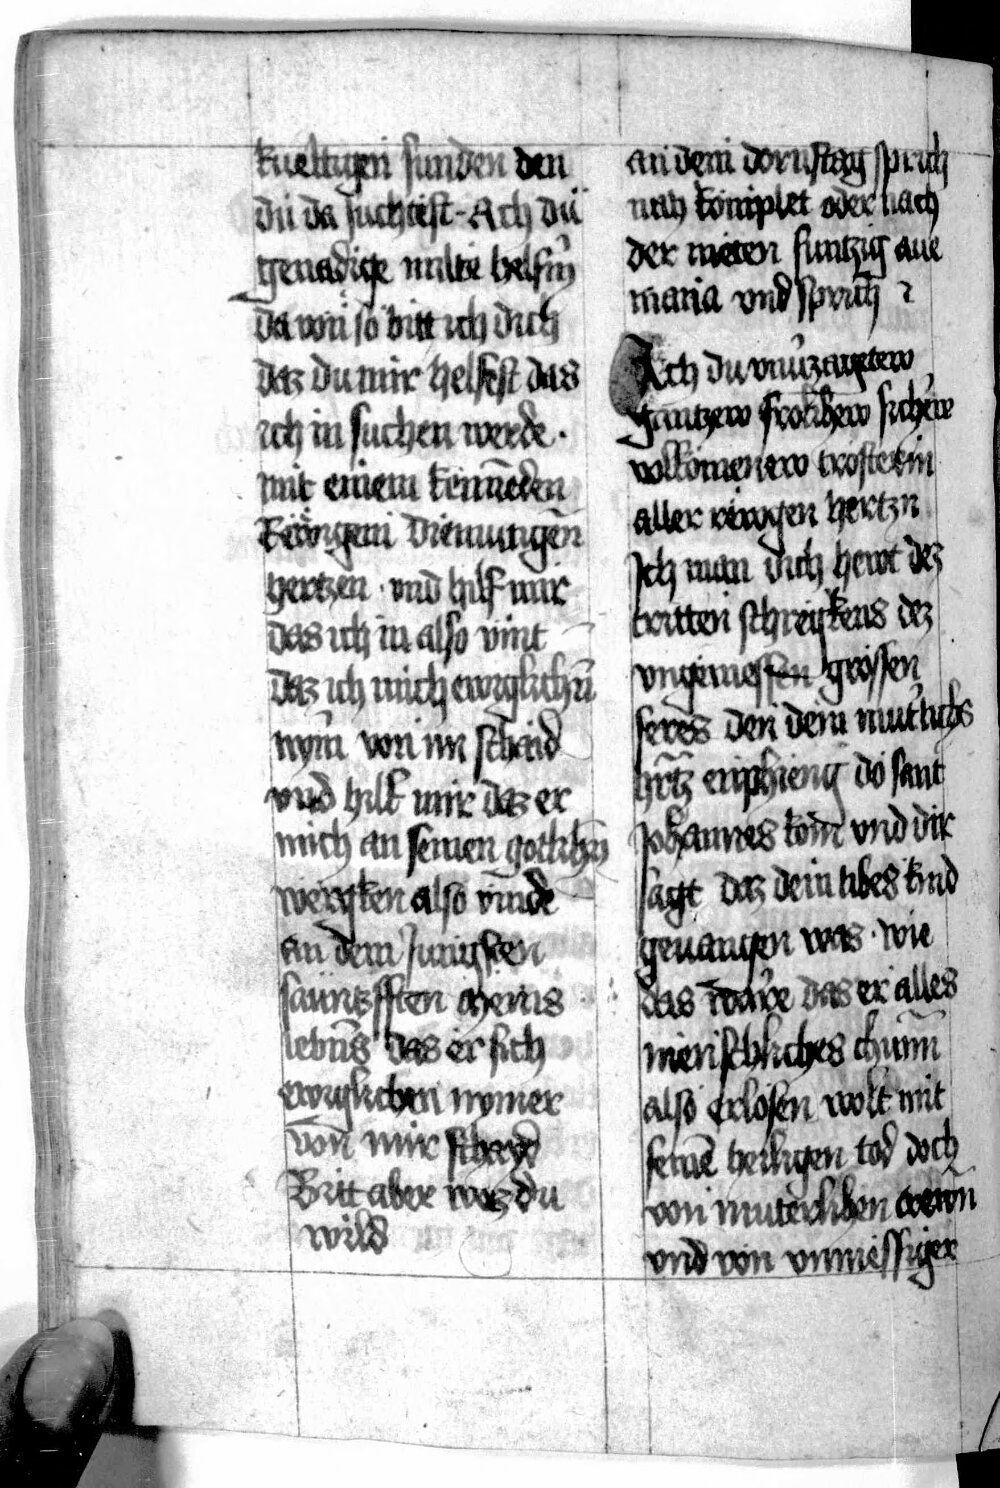 sunden den
du da suchtest - Ach du
genadige milte helferī
da von so bitt ich dich
daz du mir helfest das
ich in suchen werde ·
mit einem
diemutigen̄
hertzen · vnd hilf mir
das ich in also vint
daz ich mich ewiglichn̄
nym̄ von im schaid
vnd hilf mir daz er
mich an seinen gotlichn̄
wercken also vinde
an dem Jungsten
meins
lebn̄s das er sich
ewiglichen nymer
von mir schayd
Bitt aber waz du
wild
an dem dornstag sprich
nach komplet oder nach
der meten funtzig aue
maria vnd sprich
Ach du
gantzew sichrew
volkomenew trosterin
aller rewigen hertzn
Ich man dich hewt dez
dritten schreckens dez
vngemessen grossen
seres den dein muterlichs
hertz enphieng do sant
Johannes kom vnd dir
sagt daz dein libes kind
geuangen was · wie
das were das er alles
menschliches chunn̄
also erlosen wolt mit
seinē heiligen tod doch
von muterlichen
vnd von vnmessiger